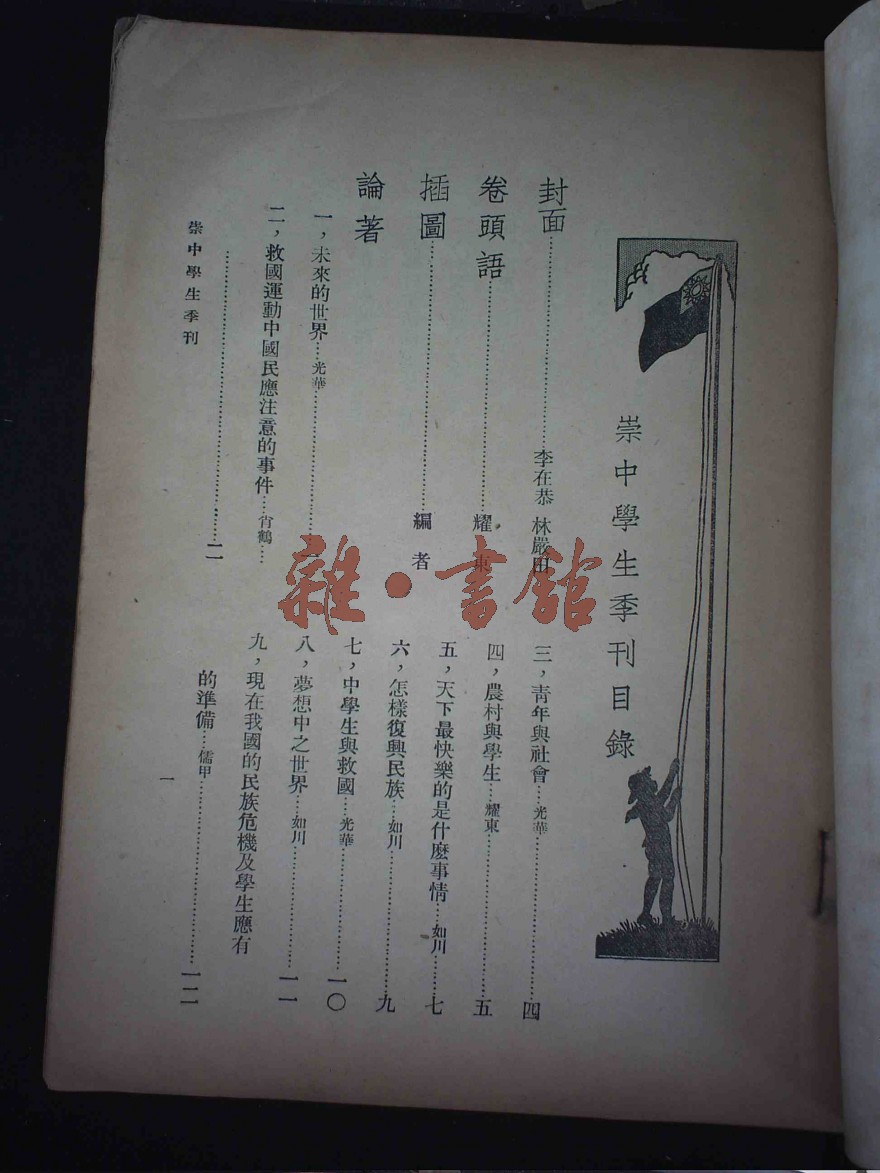 崇中學生季刊目錄
封面……李在恭 林嚴田
卷頭語……耀東
插圖……編者
論著
一，未來的世界……光華……
二，救國運動中國民應注意的事件……肖鶴……
……二
三，青年與社會……光華……四
四，農村與學生……耀東……五
五，天下最快樂的是什麽事情……如川……七
六，怎樣復興民族……如川……九
七，中學生與救國……光華……一〇
八，夢想中之世界……如川……一一
九，現在我國的民族危機及學生應有
的準備……儒甲……一二
崇中學生季刊
一
雜·書館